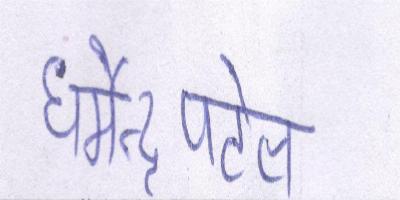 धर्मेन्द्र पटेल